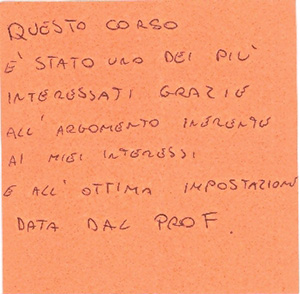 QUESTO CORSO
E' STATO UNO DEI PIU'
INTERESSATI GRAZIE
ALL'ARGOMENTO INERENTE
AI MIEI INTERESSI
E ALL'OTTIMA IMPOSTAZIONE
DATA DAL PROF.